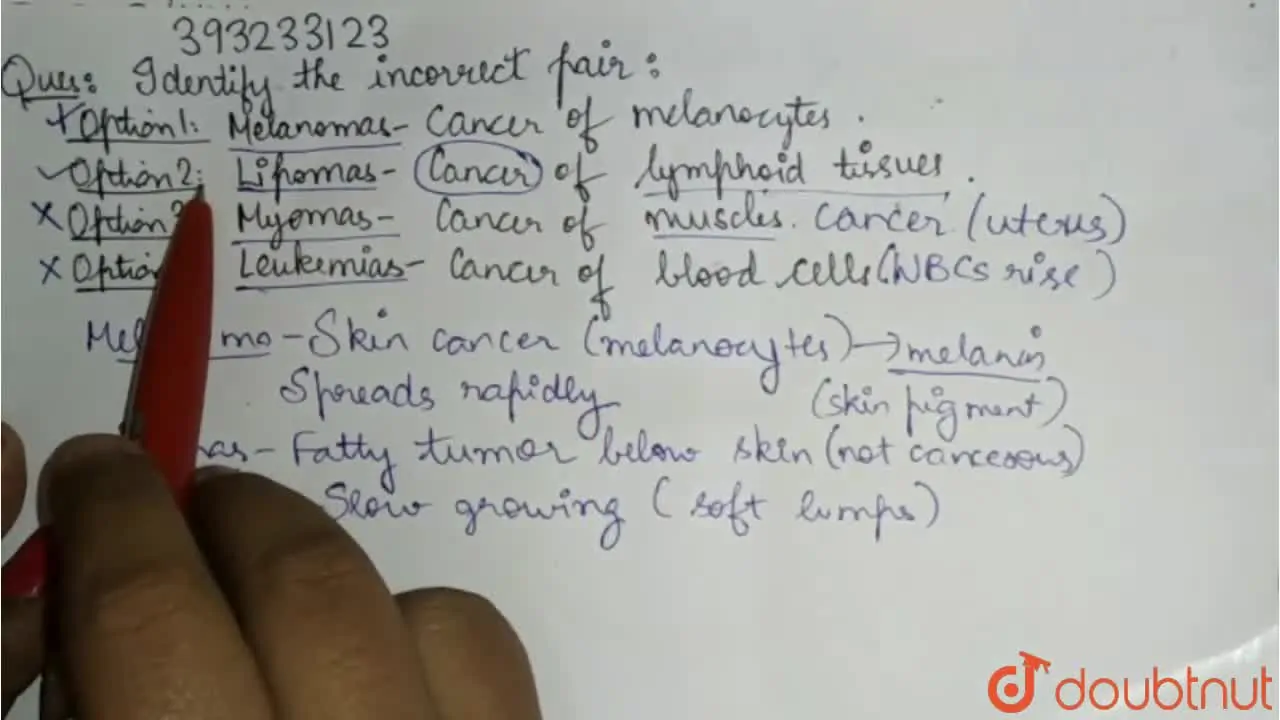 393233123
Ques: Identify the incorrect pair:
× Option 1: Melanomas- Cancer of melanocytes.
✓ Option 2: Lipomas- Cancer of lymphoid tissues.
× Option 3 Myomas- Cancer of muscles. Cancer (uterus)
× Option Leukemias- Cancer of blood cells (WBCs rise)
Mel mo - Skin cancer (melanocytes) → melanin
Spreads rapidly (skin pigment)
mas - Fatty tumor below skin (not cancerous)
Slow growing (soft lumps)
doubtnut